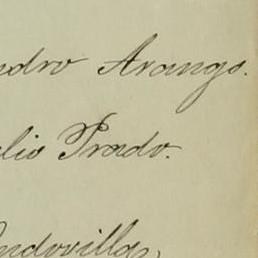 ndro Arango.
lio Prado.
ndovilla,